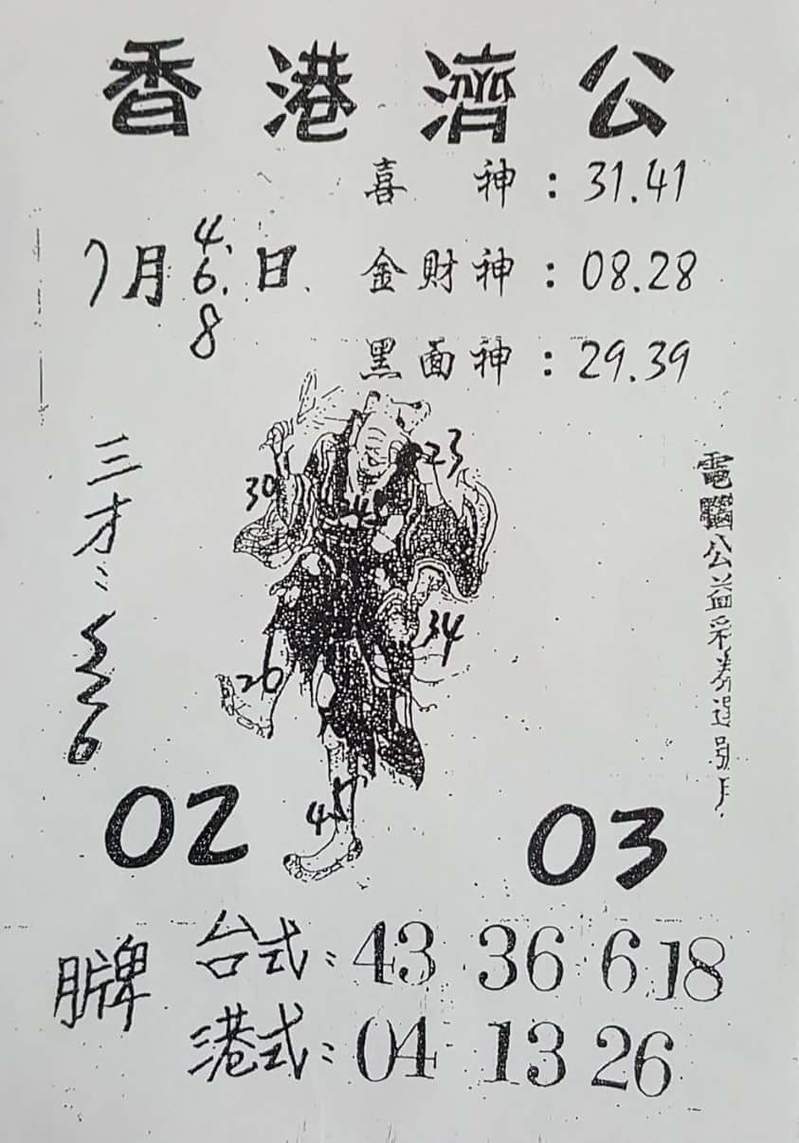 香港濟公
喜神：31.41
7月4.6.8日
金財神：08.28
黑面神：29.39
三才：
23
30
34
26
45
電腦公益彩券選號用
02
03
牌
台式：43 36 6 18
港式：04 13 26